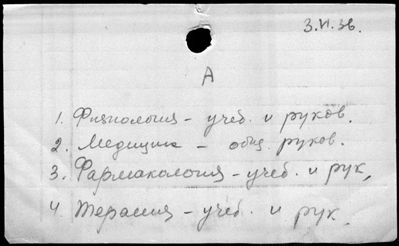 3.VI.36.
А
1. Физиология - учеб. и руков.
2. Медицина - общ. руков.
3. Фармакология - учеб. и рук.
4. Терапия - учеб. и рук.